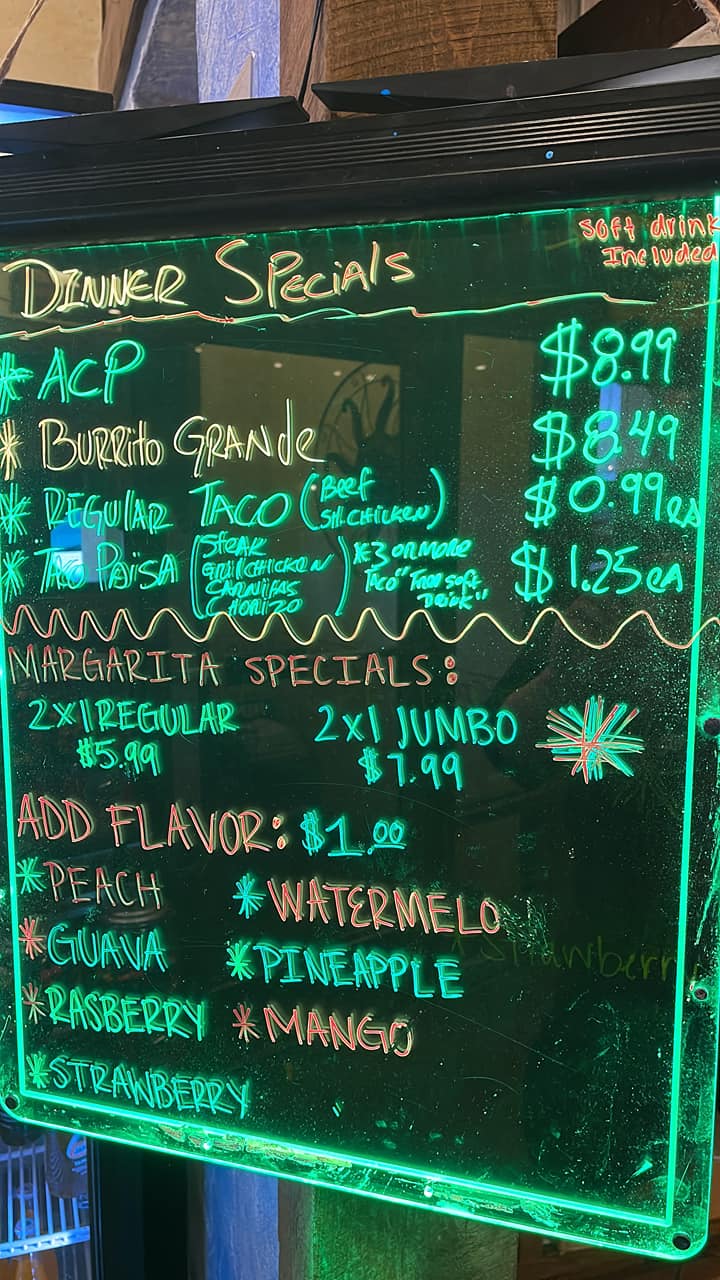 Soft drink
Included
DINNER SPECIALS
* ACP $8.99
* BURRITO GRANDE $8.49
* REGULAR TACO (Beef $0.99 EA
SH.CHICKEN)
* TACO PAISA (STEAK *3 OR MORE $1.25 EA
GRILL CHICKEN TACO "FREE SOFT
CARNITAS DRINK"
CHORIZO)
MARGARITA SPECIALS:
2x1 REGULAR 2x1 JUMBO
$5.99 $7.99
ADD FLAVOR: $1.00
* PEACH * WATERMELO
* GUAVA * PINEAPPLE
* RASBERRY * MANGO
* STRAWBERRY
* Strawberry